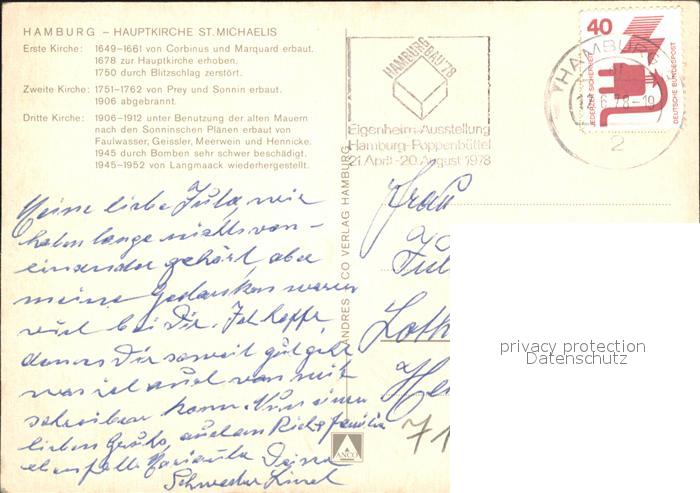 HAMBURG – HAUPTKIRCHE ST. MICHAELIS
Erste Kirche: 1649–1661 von Corbinus und Marquard erbaut.
1678 zur Hauptkirche erhoben.
1750 durch Blitzschlag zerstört.
Zweite Kirche: 1751–1762 von Prey und Sonnin erbaut.
1906 abgebrannt.
Dritte Kirche: 1906–1912 unter Benutzung der alten Mauern
nach den Sonninschen Plänen erbaut von
Faulwasser, Geissler, Meerwein und Hennicke.
1945 durch Bomben sehr schwer beschädigt.
1945–1952 von Langmaack wiederhergestellt.
Meine liebe Jula, wir
haben lange nichts von-
einander gehört, aber
meine Gedanken waren
viel bei Dir. Ich hoffe,
dass es Dir soweit gut geht
was ich auch von mir
schreiben kann. Nun einen
lieben Gruß, auch an Familie
ebenfalls Deine
Schwester
ANDRES CO VERLAG HAMBURG
ANCO
HAMBURG BAU '78
Eigenheim-Ausstellung
Hamburg-Poppenbüttel
21. April-20. August 1978
HAMBURG
78-19
2
40
JEDERZEIT SICHERHEIT
DEUTSCHE BUNDESPOST
Frau
Loth
He
71
privacy protection
Datenschutz